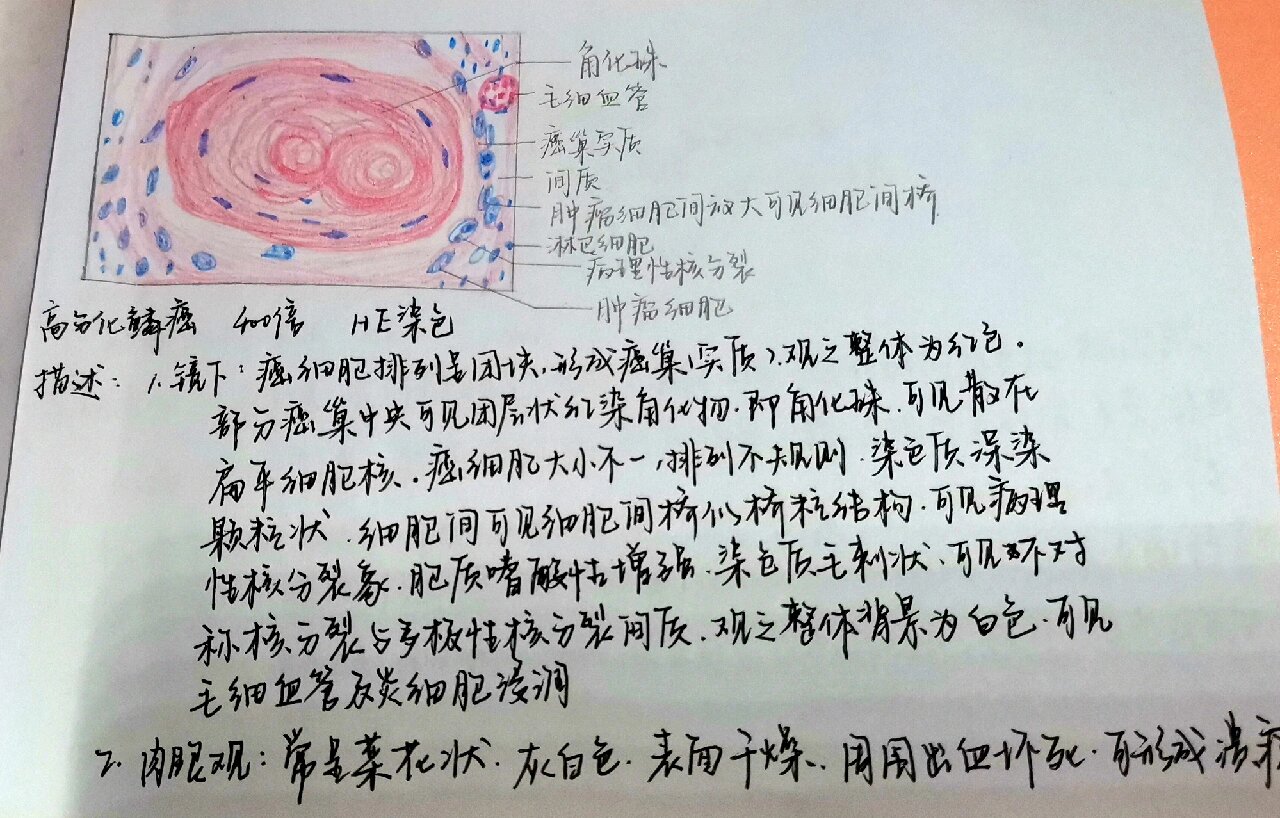 角化珠
毛细血管
癌巢实质
间质
肿瘤细胞间放大可见细胞间桥
淋巴细胞
病理性核分裂
肿瘤细胞
高分化鳞癌 400倍 HE染色
描述: 1.镜下: 癌细胞排列呈团块,形成癌巢(实质),观之整体为红色.
部分癌巢中央可见团层状红染角化物.即角化珠.可见散在
扁平细胞核.癌细胞大小不一,排列不规则.染色质深染
颗粒状.细胞间可见细胞间桥似桥粒结构.可见病理
性核分裂象.胞质嗜酸性增强.染色质毛刺状.可见不对
称核分裂与多极性核分裂间质.观之整体背景为白色.可见
毛细血管及炎细胞浸润
2.肉眼观:常呈菜花状.灰白色.表面干燥.周围出血坏死.可形成溃疡